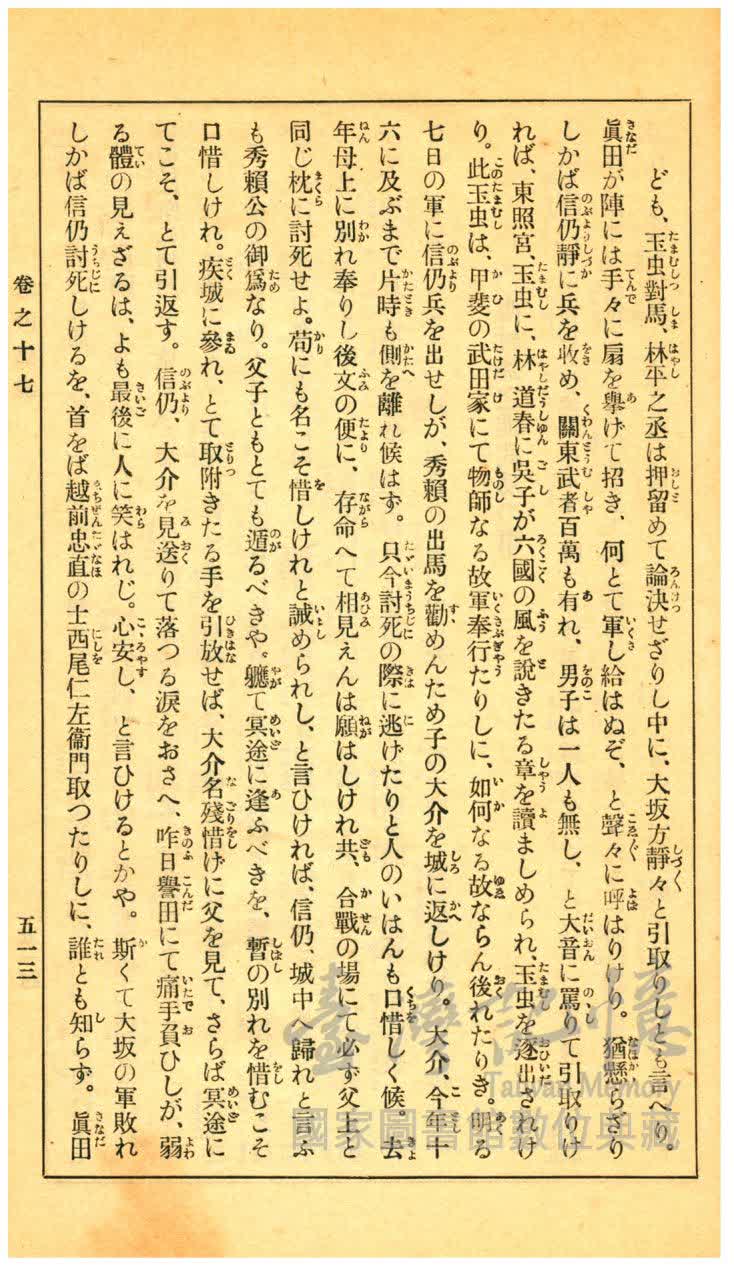 ども、玉虫對馬、林平之丞は押留めて論決せざりし中に、大坂方靜々と引取りしとも言へり。
眞田が陣には手々に扇を擧げて招き、何とて軍し給はぬぞ、と聲々に呼はりけり。猶懸らざり
しかば信仍靜に兵を收め、關東武者百萬も有れ、男子は一人も無し、と大音に罵りて引取りけ
れば、東照宮、玉虫に、林道春に吳子が六國の風を說きたる章を讀ましめられ、玉虫を逐出されけ
り。此玉虫は、甲斐の武田家にて物師なる故軍奉行たりしに、如何なる故ならん後れたりき。明る
七日の軍に信仍兵を出せしが、秀賴の出馬を勸めんため子の大介を城に返しけり。大介、今年十
六に及ぶまで片時も側を離れ候はず。只今討死の際に逃げたりと人のいはんも口惜しく候。去
年母上に別れ奉りし後文の便に、存命へて相見えんは願はしけれ共、合戰の場にて必ず父上と
同じ枕に討死せよ。苟にも名こそ惜しけれと誡められし、と言ひければ、信仍、城中へ歸れと言ふ
も秀賴公の御爲なり。父子ともとても遁るべきや。軈て冥途に逢ふべきを、暫の別れを惜むこそ
口惜しけれ。疾城に參れ、とて取附きたる手を引放せば、大介名殘惜げに父を見て、さらば冥途に
てこそ、とて引返す。信仍、大介を見送りて落つる淚をおさへ、昨日譽田にて痛手負ひしが、弱
る體の見えざるは、よも最後に人に笑はれじ。心安し、と言ひけるとかや。斯くて大坂の軍敗れ
しかば信仍討死しけるを、首をば越前忠直の士西尾仁左衞門取つたりしに、誰とも知らず。眞田
卷之十七
五一三
臺灣記憶
Taiwan Memory
國家圖書館數位典藏